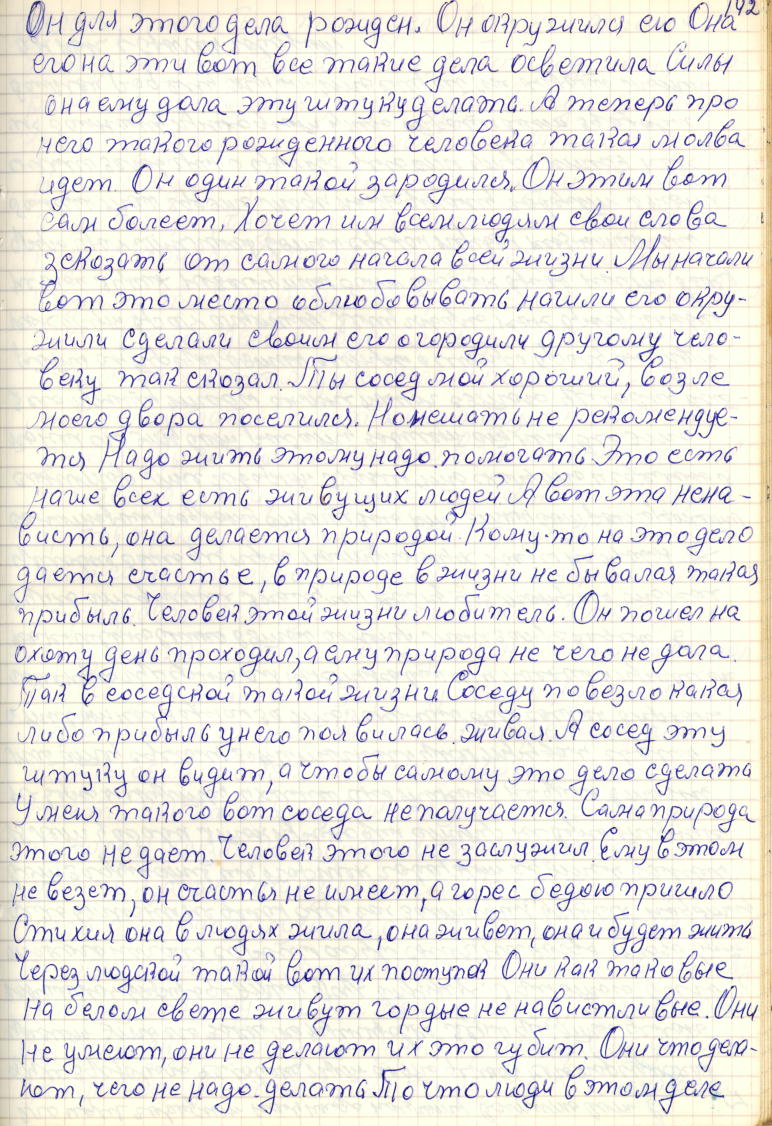 192
Он для этого дела рожден. Он окружился ею Она
его на эти вот все такие дела осветила Силы
она ему дала эту штуку делать. А теперь про
него такого рожденного человека такая молва
идет. Он один такой зародился. Он этим вот
сам болеет. Хочет им всем людям свои слова
зсказать от самого начала всей жизни. Мы начали
вот это место облюбовывать нашли его окру-
жили сделали своим его огородили другому чело-
веку так сказал. Ты сосед мой хороший, возле
моего двора поселился. Но мешать не рекомендуе-
тся Надо жить этому надо помогать Это есть
наше всех есть живущих людей А вот эта нена-
висть, она делается природой. Кому-то на это дело
дается счастье, в природе в жизни не бывалая такая
прибыль. Человек этой жизни любитель. Он пошел на
охоту день проходил, а ему природа не чего не дала.
Так в соседской такой жизни. Соседу повезло какая
либо прибыль у него появилась живая. А сосед эту
штуку он видит, а чтобы самому это дело сделать
У меня такого вот соседа не получается. Сама природа
этого не дает. Человек этого не заслужил. Ему в этом
не везет, он счастья не имеет, а горес бедою пришло
Стихия она в людях жила, она живет, она и будет жить
Через людской такой вот их поступок Они как таковые
на белом свете живут гордые не навистливые. Они
не умеют, они не делают их это губит. Они что дела-
ют, чего не надо делать То что люди в этом деле